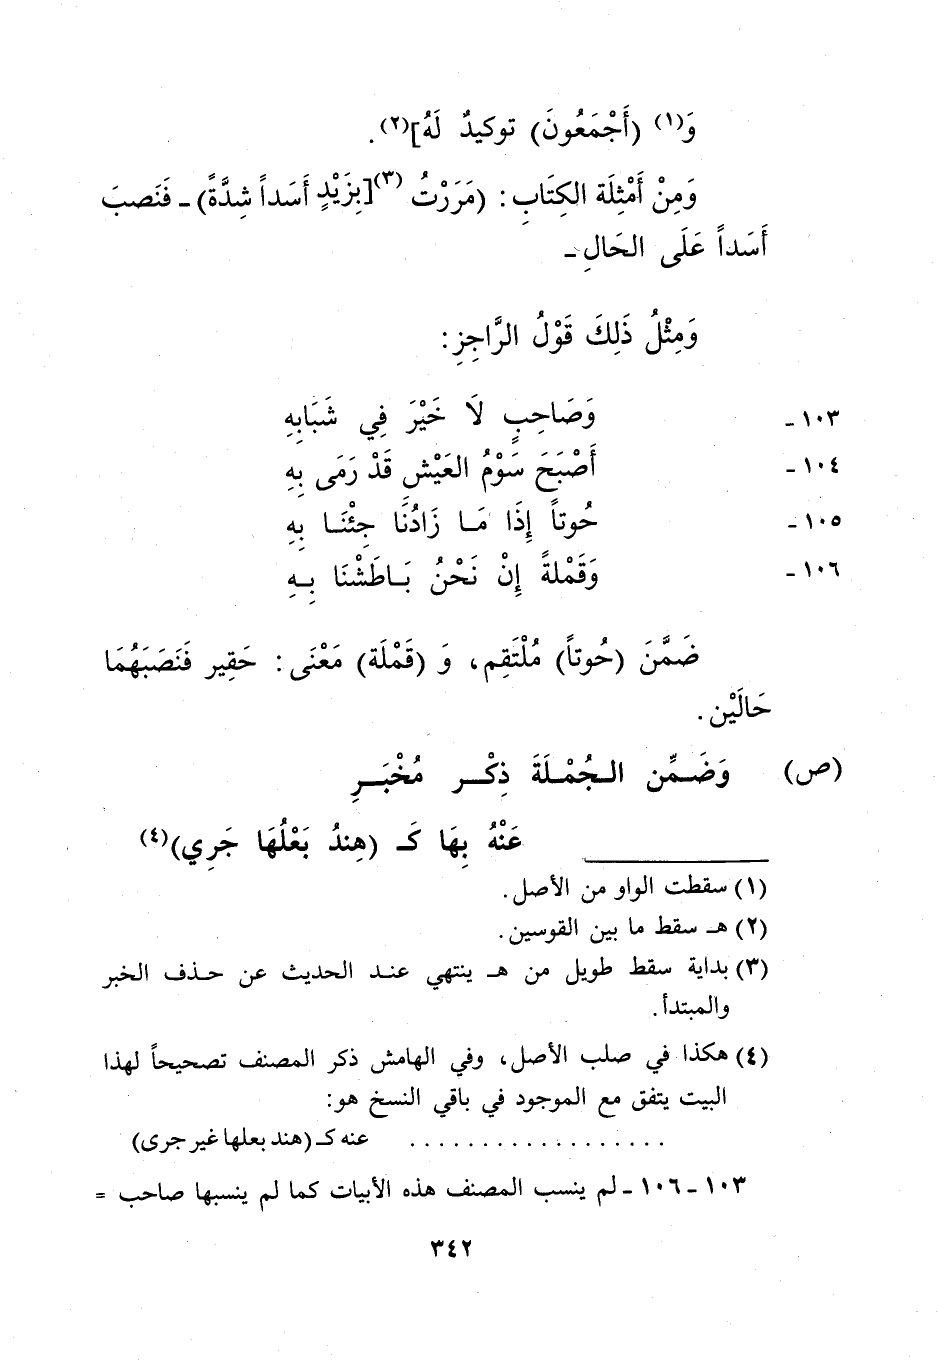 وَ(١) (أَجْمَعُونَ) توكيدٌ لَهُ](٢).
وَمِنْ أَمْثِلَة الكِتَابِ: (مَرَرْتُ (٣)[بِزَيْدٍ أَسَداً شِدَّةً) ـ فَنَصبَ
أَسَداً عَلَى الحَالِ ـ
وَمِثْلُ ذَلِكَ قَوْلُ الرَّاجِزِ:
١٠٣ ـ وَصَاحِبٍ لَا خَيْرَ فِي شَبَابِهِ
١٠٤ ـ أَصْبَحَ سَوْمُ العَيْشِ قَدْ رَمَى بِهِ
١٠٥ ـ حُوتاً إِذَا مَا زَادُنَا جِئْنَا بِهِ
١٠٦ ـ وَقَمْلةً إِنْ نَحْنُ بَاطَشْنَا بِهِ
ضَمَّنَ (حُوتاً) مُلْتَقِم، وَ (قَمْلَة) مَعْنَى: حَقِير فَنَصَبَهُمَا
حَالَيْن.
(ص) وَضَمِّن الجُمْلَةَ ذِكْر مُخْبَرِ
عَنْهُ بِهَا كَـ (هِندُ بَعْلُهَا جَرِي)(٤)
(١) سقطت الواو من الأصل.
(٢) هـ سقط ما بين القوسين.
(٣) بداية سقط طويل من هـ ينتهي عند الحديث عن حذف الخبر
والمبتدأ.
(٤) هكذا في صلب الأصل، وفي الهامش ذكر المصنف تصحيحاً لهذا
البيت يتفق مع الموجود في باقي النسخ هو:
. . . . . . . . . . . . . . . . . . عنه كـ (هند بعلها غير جرى)
١٠٣ ـ ١٠٦ ـ لم ينسب المصنف هذه الأبيات كما لم ينسبها صاحب =
٣٤٢